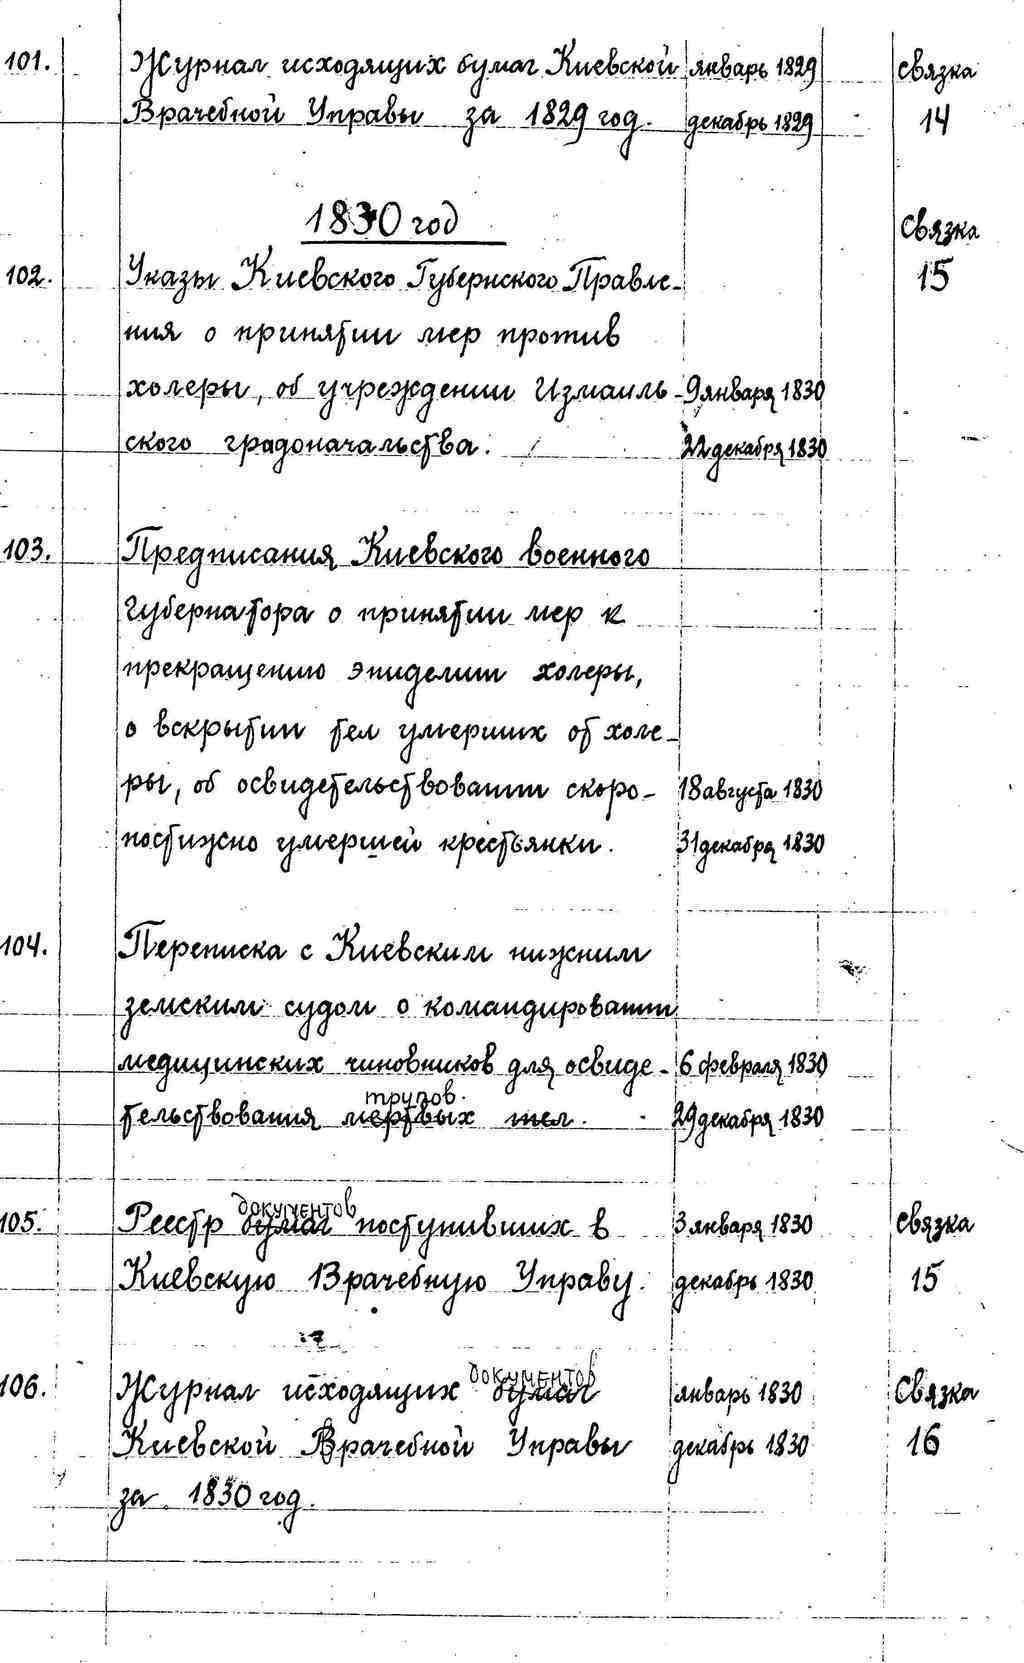 101. Журнал исходящих бумаг Киевской январь 1829 связка
Врачебной Управы за 1829 год. декабрь 1829 14
1830 год
Связка
102. Указы Киевского Губернского Правле- 15
ния о принятии мер против
холеры, об учреждении Измаиль- 9 января 1830
ского градоначальства. 22 декабря 1830
103. Предписания Киевского военного
Губернатора о принятии мер к
прекращению эпидемии холеры,
о вскрытии тел умерших от холе-
ры, об освидетельствовании скоро- 18 августа 1830
постижно умершей крестьянки. 31 декабря 1830
104. Переписка с Киевским нижним
земским судом о командировании
медицинских чиновников для освиде- 6 февраля 1830
трупов.
тельствования мертвых тел. 29 декабря 1830
документов
105. Реестр бумаг поступивших в 3 января 1830 связка
Киевскую Врачебную Управу. декабрь 1830 15
документов
106. Журнал исходящих бумаг январь 1830 Связка
Киевской Врачебной Управы декабрь 1830 16
за 1830 год.